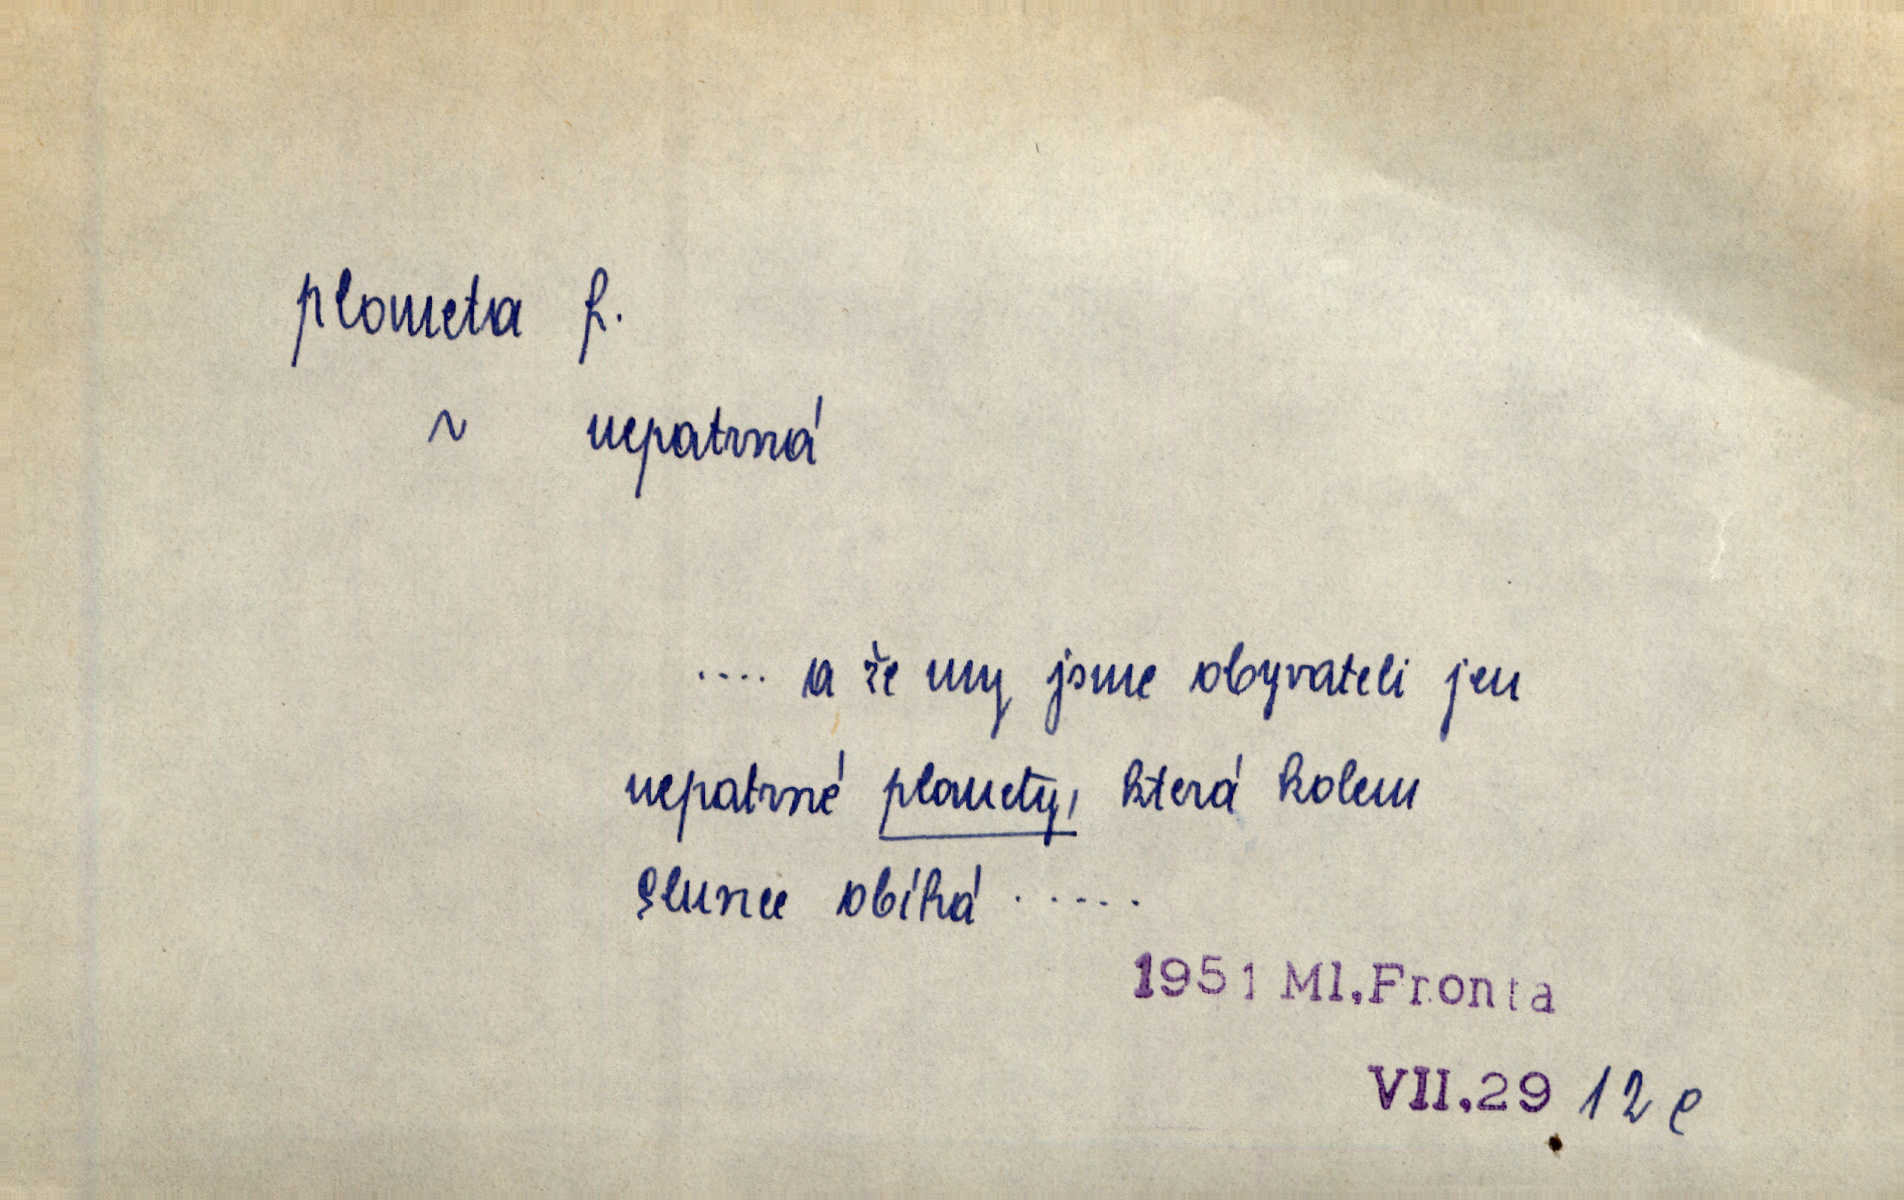 planeta f.
~ nepatrná
.... a že my jsme obyvateli jen
nepatrné planety, která kolem
Slunce obíhá .....
1951 Ml.Fronta
VII.29 12 e